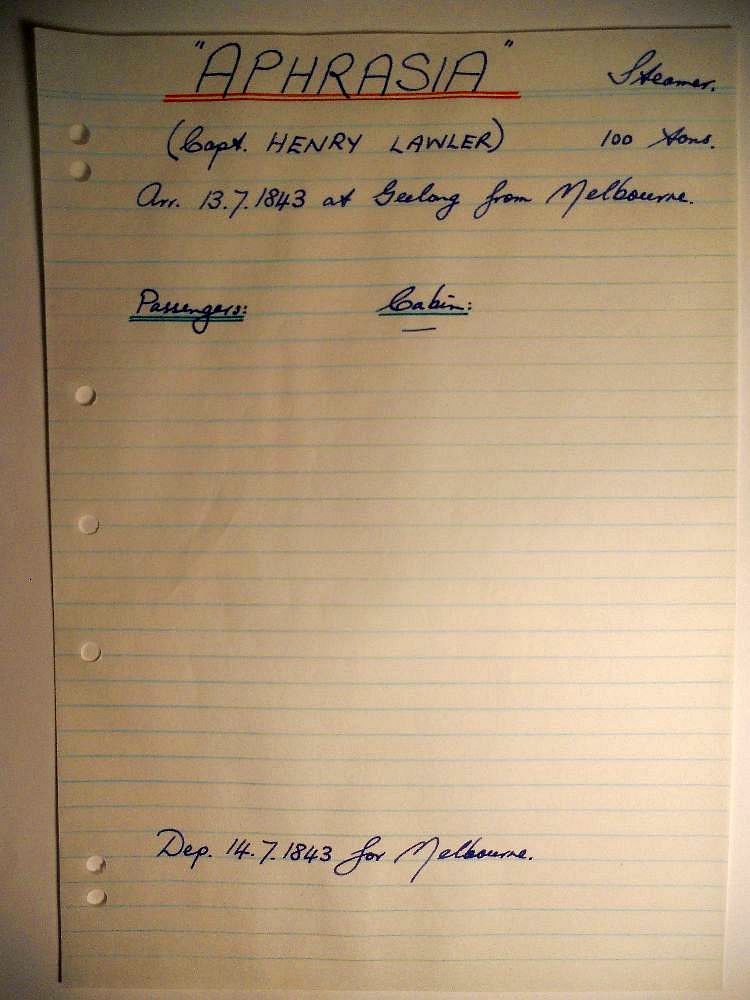 "APHRASIA" Steamer.
(Capt. HENRY LAWLER) 100 tons.
Arr. 13.7.1843 at Geelong from Melbourne.
Passengers: Cabin:
—
Dep. 14.7.1843 for Melbourne.